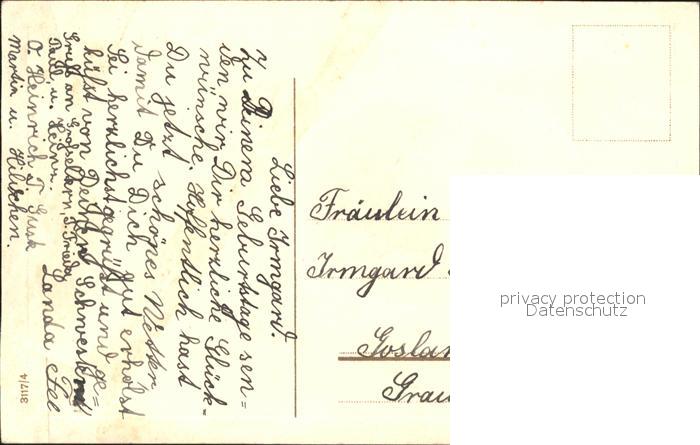 Liebe Irmgard.
Zu Deinem Geburtstage sen=
den wir Dir herzliche Glück=
wünsche. Hoffentlich hast
Du jetzt schönes Wetter
damit Du Dich gut erholst
Sei herzlichst gegrüßt und ge=
küßt von Deinen Schwestern
Landa
Gruß an Großeltern, T. Frieda
Paul u. Heinz.
O. Heinrich T. Gusti
Martin u. Hilschen.
8117/4
Fräulein
Irmgard
Goslar
Grau
privacy protection
Datenschutz